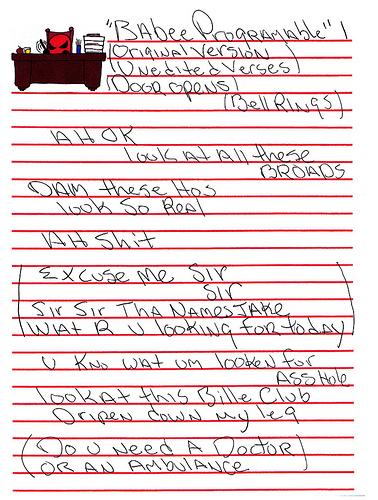 "BAbee Programable" 1
(Original Version)
(Unedited Verses)
(Door opens)
(Bell Rings)
AH OK
look At All these
BROADS
DAIM these Hos
look So Real
AH Shit
(Excuse me Sir
Sir
Sir Sir Tha Names JAke
WhAt R U looking for today)
U Kno wat um looken for
ASSHole
look At this Bille Club
Dripen down my leg
(Do U Need A Doctor
OR AN AmbulANce)